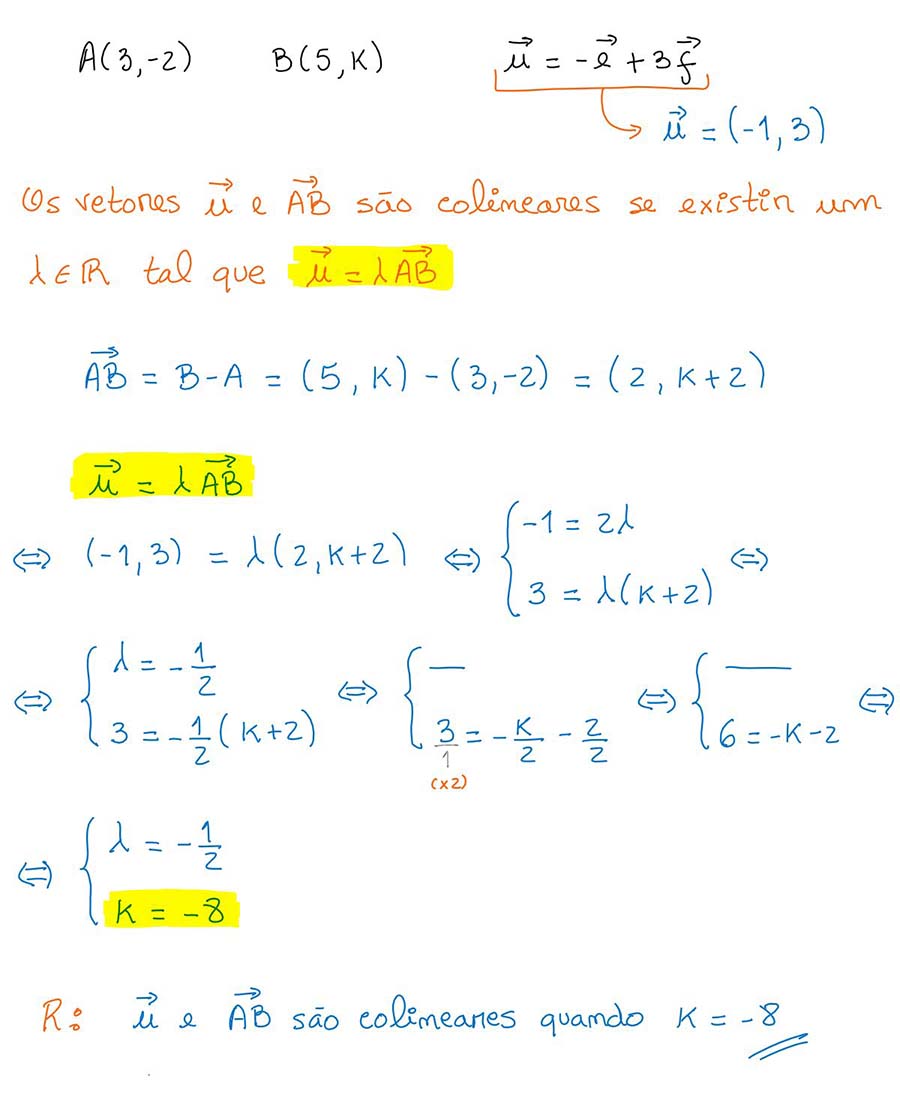 A(3,-2) B(5,K) u⃗ = -e⃗ + 3f⃗
u⃗ = (-1,3)
Os vetores u⃗ e AB⃗ são colineares se existir um
λ∈ℝ tal que u⃗ = λAB⃗
AB⃗ = B-A = (5,K) - (3,-2) = (2,K+2)
u⃗ = λAB⃗
⇔ (-1,3) = λ(2,K+2) ⇔ { -1 = 2λ ; 3 = λ(K+2) ⇔
⇔ { λ = -1/2 ; 3 = -1/2(K+2) ⇔ { — ; 3/1 = -K/2 - 2/2 ⇔ { — ; 6 = -K-2 ⇔
(×2)
⇔ { λ = -1/2 ; K = -8
R: u⃗ e AB⃗ são colineares quando K = -8